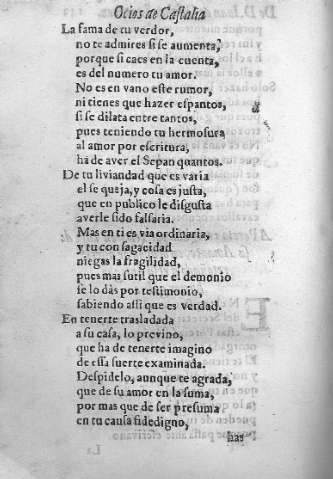 Ocios de Castalia
La fama de tu verdor,
no te admires si se aumenta,
porque si caes en la cuenta,
es del numero tu amor.
No es en vano este rumor,
ni tienes que hazer espantos,
si se dilata entre tantos,
pues teniendo tu hermosura
al amor por escritura,
ha de aver el Sepan quantos.
De tu liviandad que es varia
el se queja, y cosa es justa,
que en publico le disgusta
averle sido falsaria.
Mas en ti es via ordinaria,
y tu con sagacidad
niegas la fragilidad,
pues mas sutil que el demonio
se lo dàs por testimonio,
sabiendo assi que es verdad.
En tenerte trasladada
a su casa, lo previno,
que ha de tenerte imagino
de essa suerte examinada.
Despidelo, aunque te agrada,
que de su amor en la suma,
por mas que de ser presuma
en tu causa fidedigno,
has